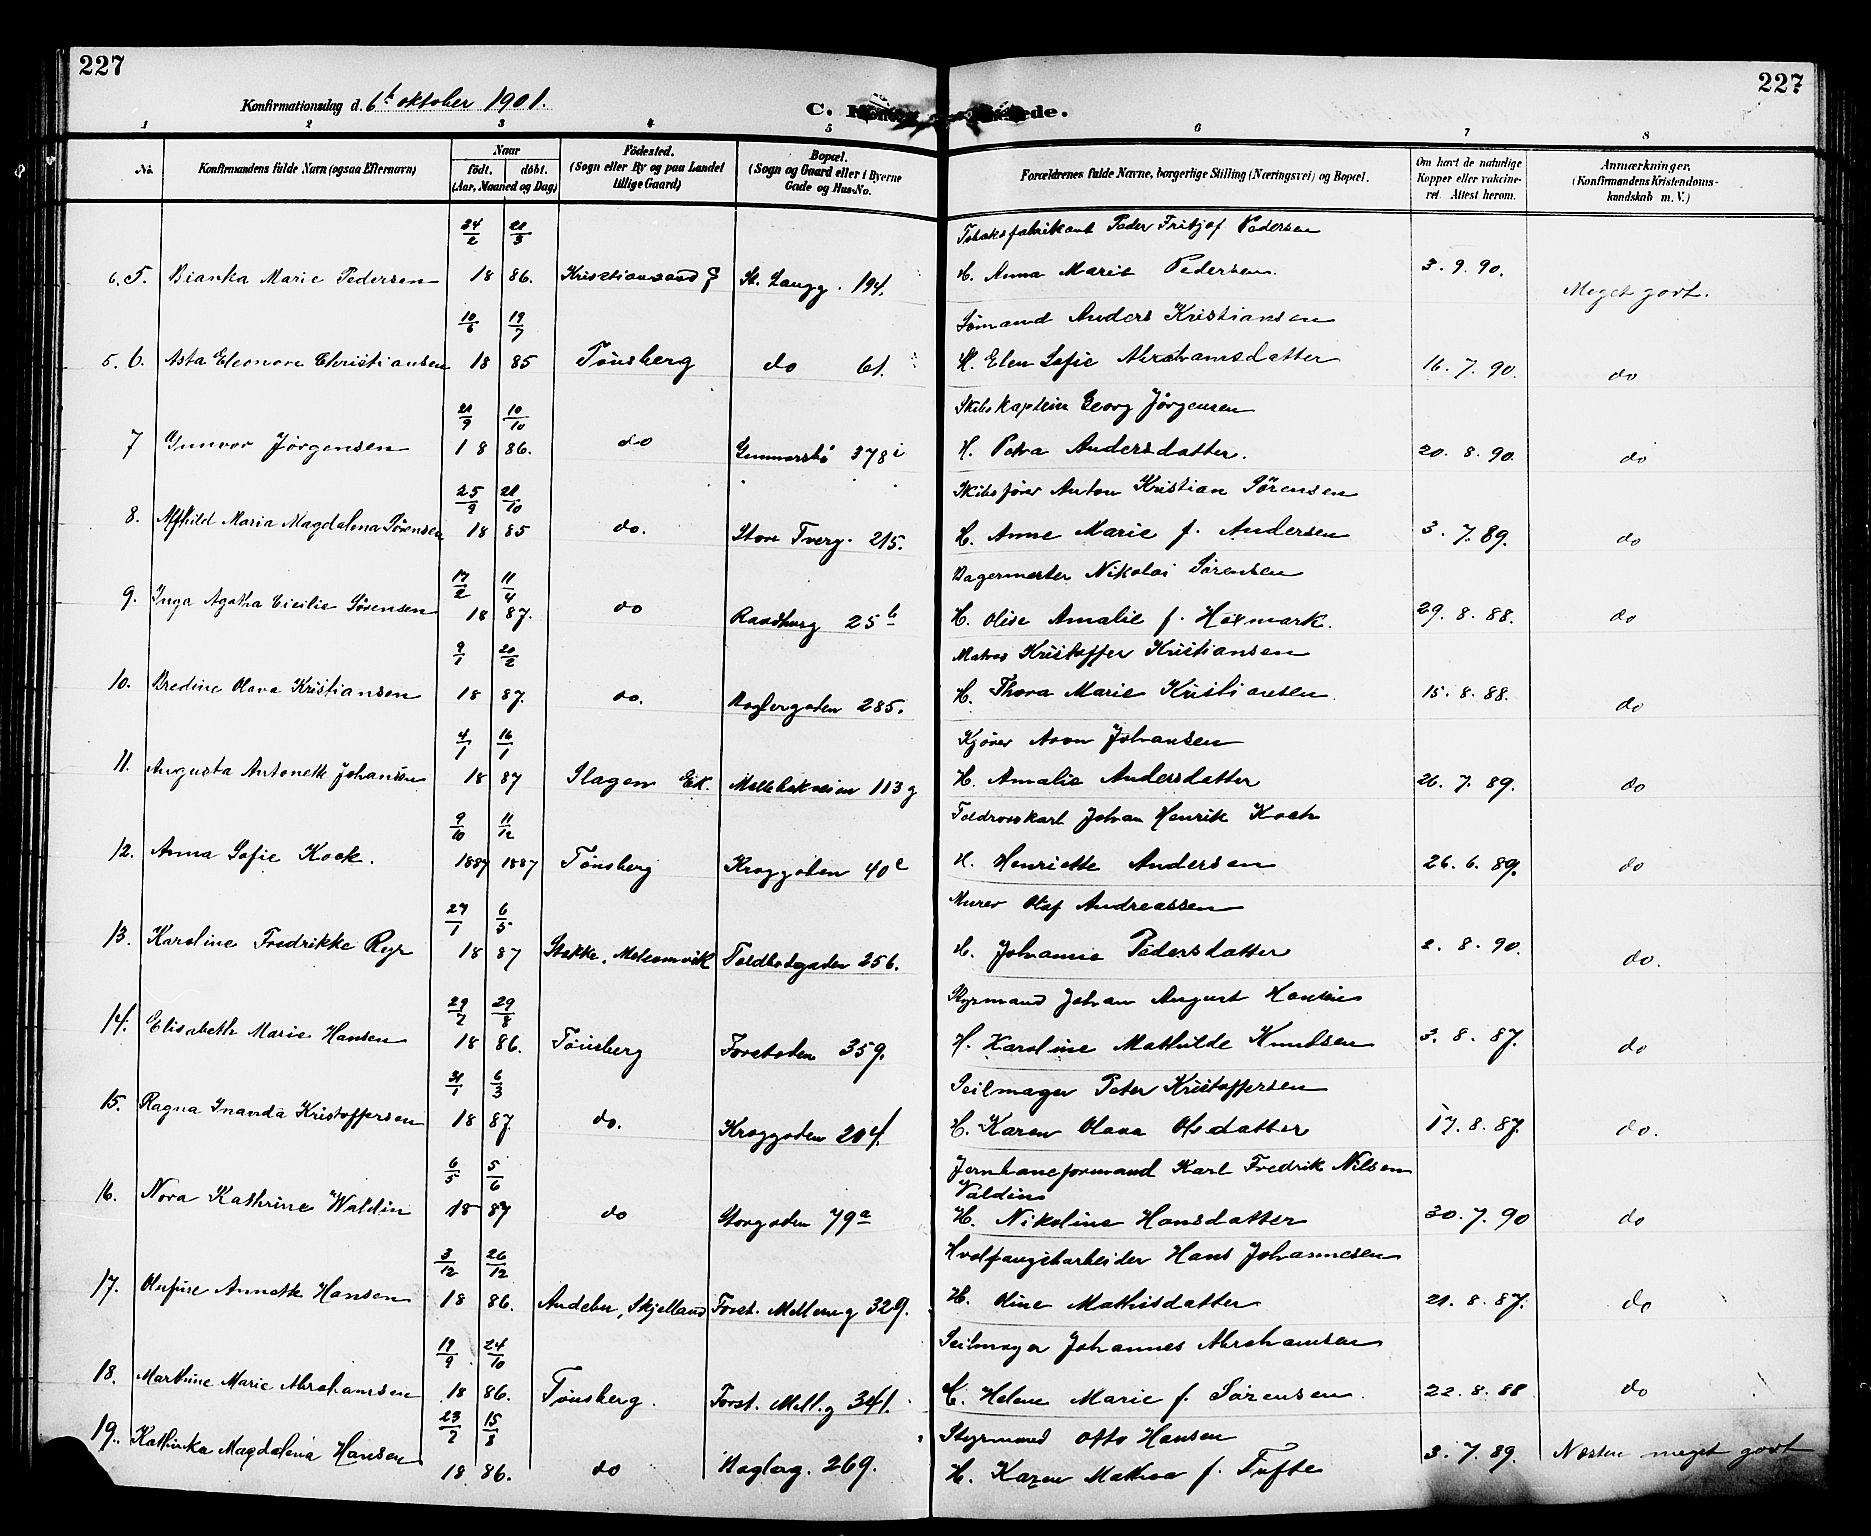 227
227
Konfirmationsdag d. 6t oktober 1901.
C.
1 2 3 4 5 6 7 8
No.
Konfirmandens fulde Navn (ogsaa Efternavn)
Naar
födt. döbt.
(Aar, Maaned og Dag)
Födested.
(Sogn eller By og paa Landet
tillige Gaard)
Bopæl.
(Sogn og Gaard eller i Byerne
Gade og Hus-No.
Forældrenes fulde Navne, borgerlige Stilling (Næringsvei) og Bopæl.
Om havt de naturlige
Kopper eller vakcine-
ret. Attest herom.
Anmærkninger,
(Konfirmandens Kristendoms-
kundskab m. V.)
24/2 21/3 Tobaksfabrikant Peder Fritjof Pedersen
6. 5. Bianka Marie Pedersen 18 86. Kristiansand St. Langg. 194. H. Anna Marie Pedersen. 3. 9. 90. Meget godt.
10/6 19/7 Sömand Anders Kristiansen
5. 6. Asta Eleonore Christiansen 18 85 Tönsberg do 61. H. Elen Sofie Abrahamsdatter 16. 7. 90. do
21/9 10/10 Skibskaptein Georg Jörgensen
7 Gunvor Jörgensen 18 86. do Gunnarsbö 378 i H. Petra Andersdatter. 20. 8. 90. do
25/9 21/10 Skibsförer Anton Kristian Sörensen
8. Alfhild Maria Magdalena Sörensen 18 85 do. Store Tverg. 215. H. Anne Marie f. Andersen 3. 7. 89. do
17/2 11/4 Bagermester Nikolai Sörensen
9. Inga Agatha Cicilie Sörensen 18 87. do Raadhusg 25 b H. Olise Amalie f. Hoxmark. 29. 8. 88. do
9/1 20/2 Matros Kristoffer Kristiansen
10. Bredine Olava Kristiansen 18 87. do. Baglergaden 285. H. Thora Marie Kristiansen. 15. 8. 88. do
4/1 16/1 Kjörer Aron Johansen
11. Augusta Antonette Johansen 18 87 Slagen Ek. Möllebakveien 113 g H. Amalie Andersdatter 26. 7. 89. do
9/10 11/12 Toldroerskarl Johan Henrik Koch
12. Anna Sofie Kock. 1887 1887 Tönsberg Kroggaden 40 c H. Henriette Andersen 26. 6. 89. do
27/1 6/5 Murer Olaf Andreassen
13. Karoline Fredrikke Ryr 18 87 Stokke, Melsomvik Toldbodgaden 256. H. Johanne Pedersdatter 2. 8. 90. do.
29/7 29/8 Styrmand Johan August Hansen
14. Elisabeth Marie Hansen 18 86. Tönsberg Forstaden 359. H. Karoline Mathilde Knudsen 3. 8. 87. do
31/1 6/3 Seilmager Peter Kristoffersen
15. Ragna Inanda Kristoffersen 18 87. do. Kroggaden 204. H. Karen Olava Olsdatter 17. 8. 87. do.
6/5 5/6 Jernbaneformand Karl Fredrik Nilsen
Valdin
16. Nora Kathrine Waldin 18 87 do Storgaden 79 a H. Nikoline Hansdatter 30. 7. 90 do
3/12 26/12 Hvalfangstarbeider Hans Johannesen
17. Olufine Annette Hansen 18 86. Andebu, Skjelland Forst. Mellemg 329. H. Oline Mathisdatter 21. 8. 87. do
19/9 24/10 Seilmager Johannes Abrahamsen
18. Marthine Marie Abrahamsen 18 86. Tönsberg. Forst. Mell.g 341. H. Helene Marie f. Sörensen. 22. 8. 88 do
23/7 15/8 Styrmand Otto Hansen
19. Kathinka Magdalena Hansen 18 86. do Baglerg. 269. H. Karen Mathea f. Tufte 3. 7. 89. Næsten meget godt